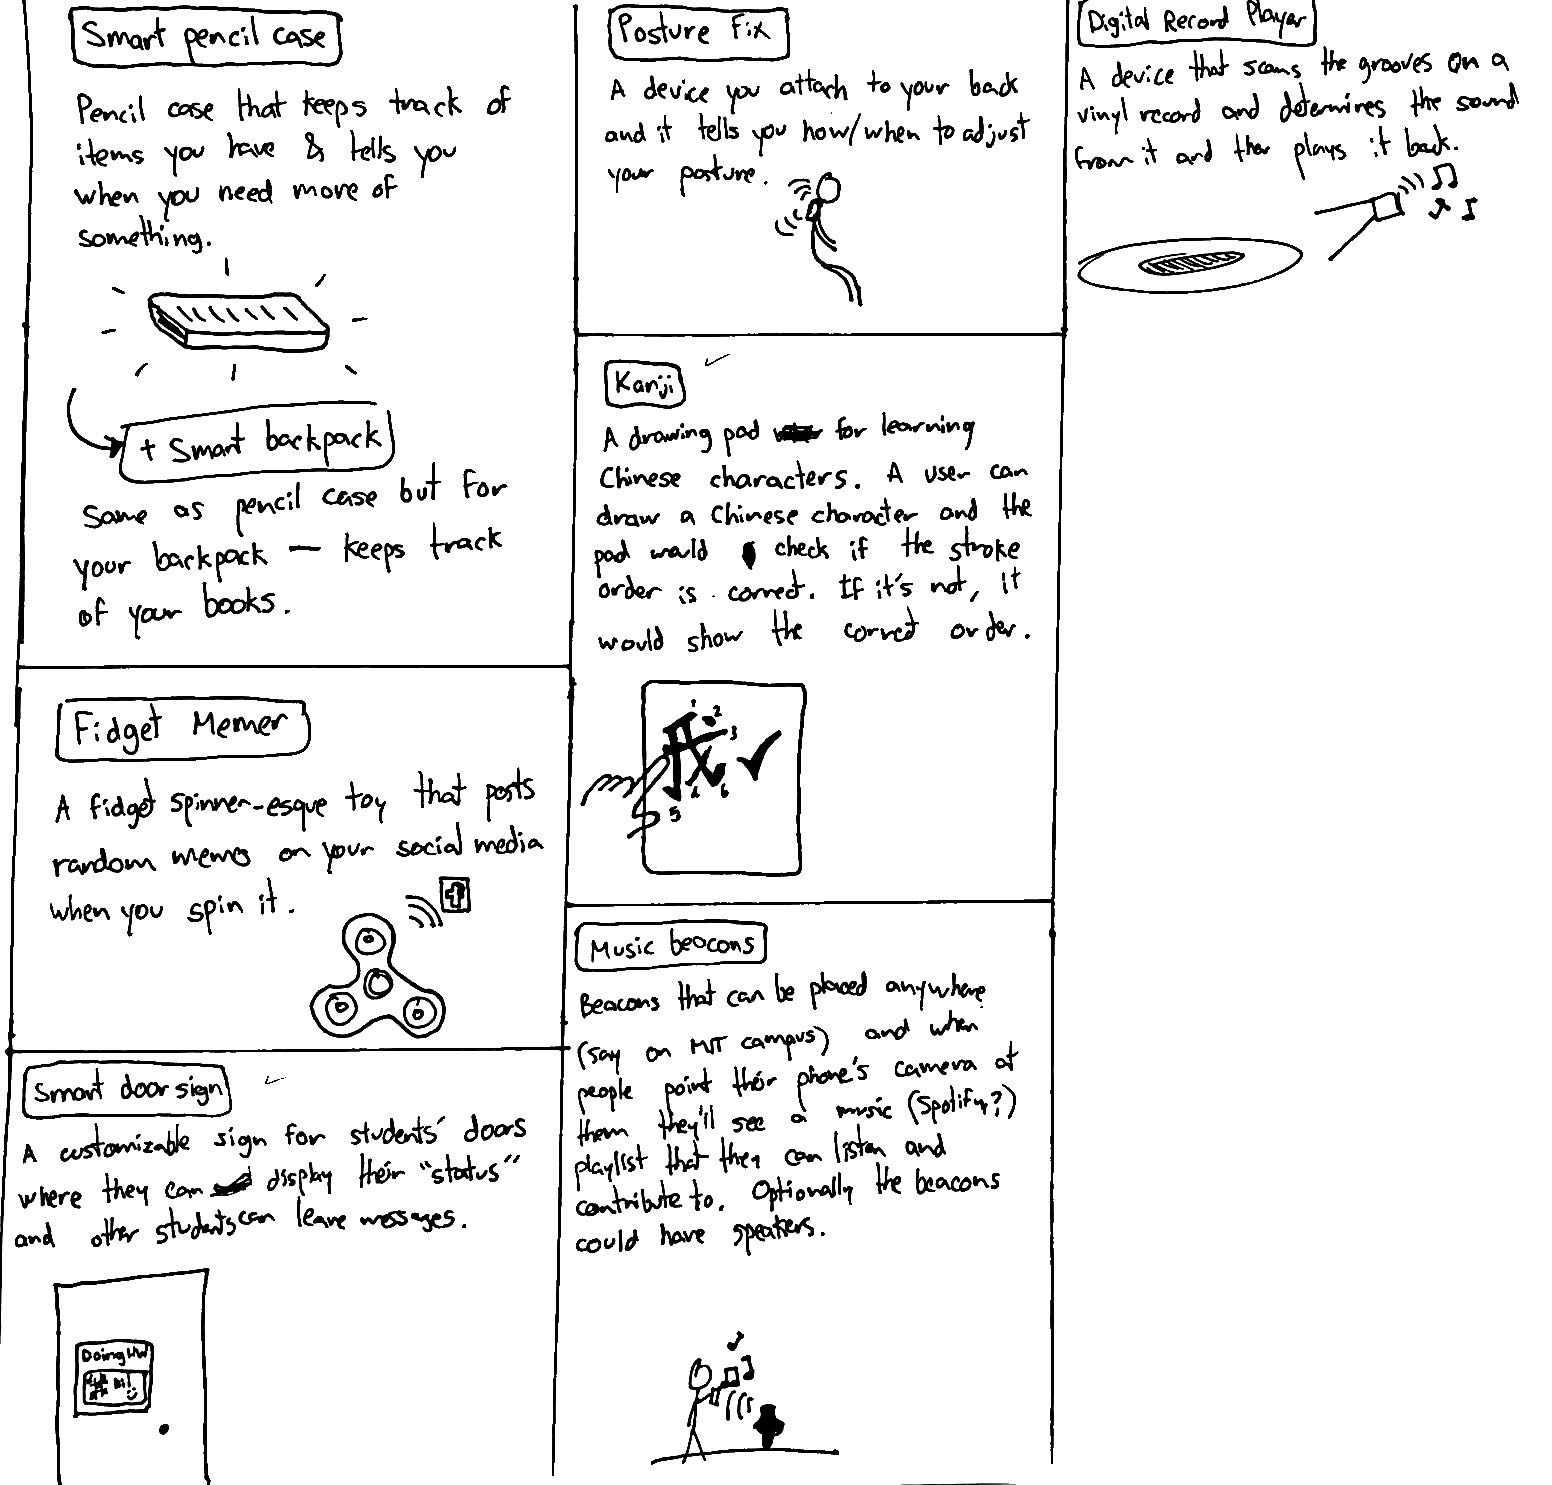 Smart pencil case
Pencil case that keeps track of
items you have & tells you
when you need more of
something.
+ Smart backpack
Same as pencil case but for
your backpack — keeps track
of your books.
Fidget Memer
A fidget spinner-esque toy that posts
random memes on your social media
when you spin it.
f
Smart door sign
A customizable sign for students' doors
where they can display their "status"
and other students can leave messages.
Doing HW
Hi!
Posture Fix
A device you attach to your back
and it tells you how/when to adjust
your posture.
Kanji
A drawing pad for learning
Chinese characters. A user can
draw a Chinese character and the
pad would check if the stroke
order is correct. If it's not, it
would show the correct order.
1 2
3
4 6
5
Music beacons
Beacons that can be placed anywhere
(say on MIT campus) and when
people point their phone's camera at
them they'll see a music (Spotify?)
playlist that they can listen and
contribute to. Optionally the beacons
could have speakers.
Digital Record Player
A device that scans the grooves on a
vinyl record and determines the sound
from it and then plays it back.